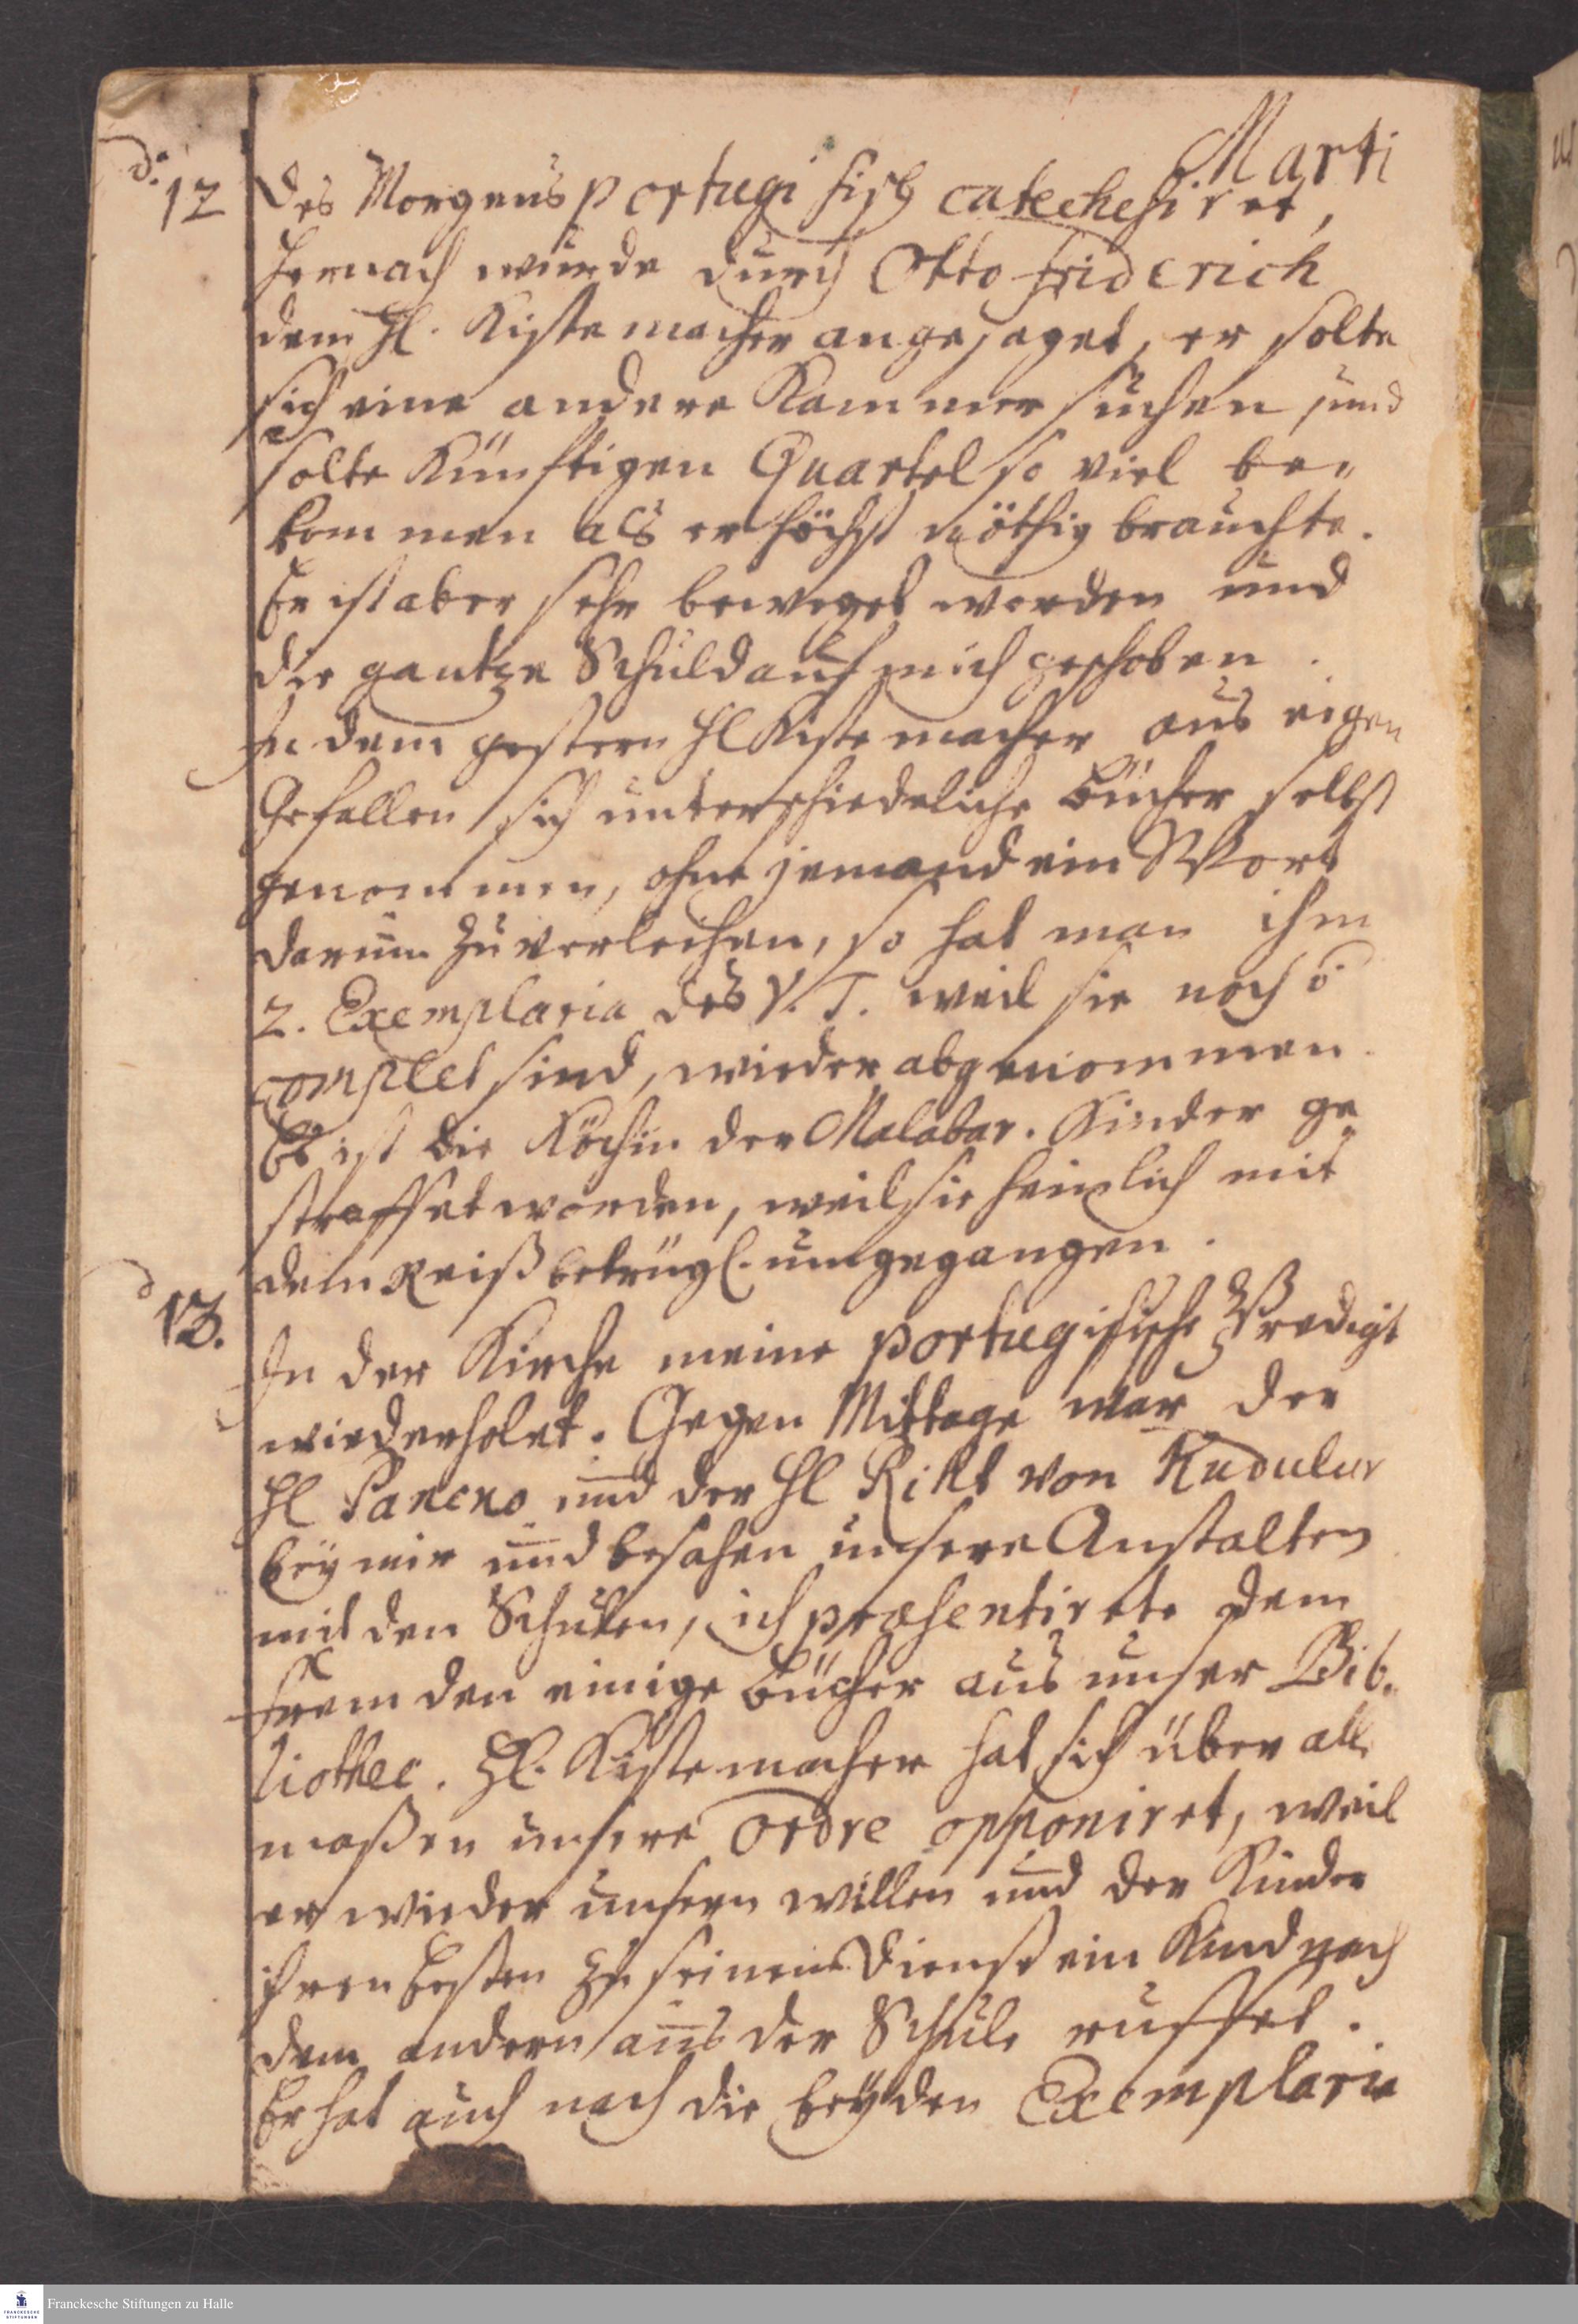 Marti
d. 12 des Morgens portugisisch catechesiret,
hernach wurde durch Otto friderich
dem Hl. Kistemacher angesaget, er solte
sich eine andere Kammer suchen, und
solte künftigen Quartel so viel be„
kommen als er höchst nöthig brauchte.
Er ist aber sehr beweget worden und
die gantze Schuld auf mich geschoben.
In dem gestern Hl Kistemacher aus eigen
Gefallen sich unterschiedeliche Bücher selbst
genommen, ohne jemand ein Wort
darum zu verleihen, so hat man ihm
2. Exemplaria des V. T. weil sie noch ō
complet sind, wieder abgenommen.
Es ist die Köchin der Malabar. Kinder ge„
straffet worden, weil sie heimlich mit
dem Reiß betrügl. umgegangen.
d 13. In der Kirche meine portugisische Predigt
wiederholet. Gegen Mittage war der
Hl Panck und der Hl Rikt von Kudulur
bey mir und besahen unsere Anstalten
mit den Schulen, ich præsentirete dem
fremden einige Bücher aus unser Bib„
liothec. Hl. Kistemacher hat sich über alle
maßen unsere Ordre opponiret, weil
er wieder unsern willen und der Kinder
ihren besten zu seinem Dienst ein Kind nach
dem andern aus der Schule ruffet.
Er hat auch nach die beyden Exemplaria
Franckesche Stiftungen zu Halle